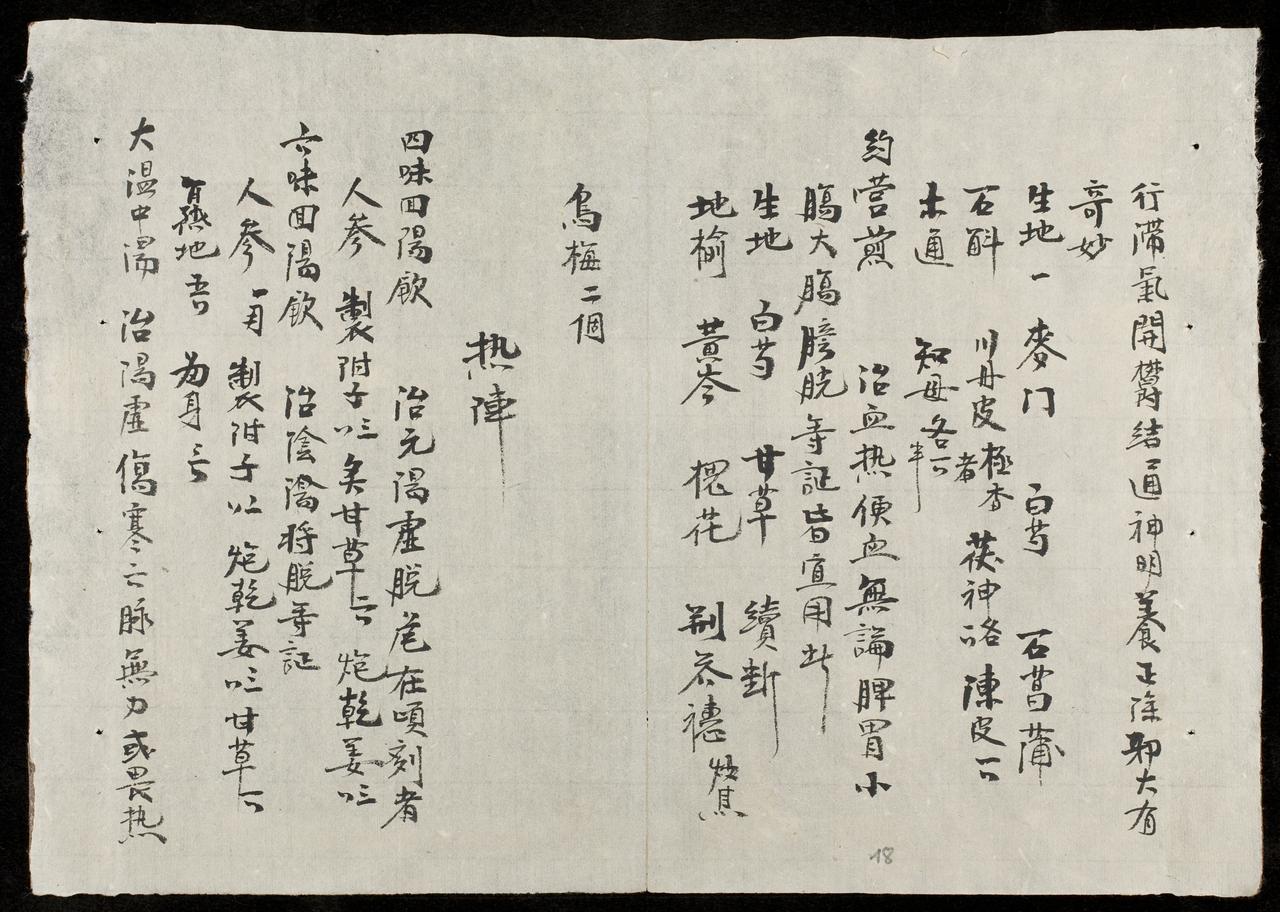 行滯氣開欝結通神明養正除邪大有
奇妙
生地一 麥门 白芍 石菖蒲
石斛 川丹皮極香者 茯神 陳皮
木通 知母各 半
約营煎 治血热便血無論脾胃小
腸大腸膀胱等証皆宜用此
生地 白芍 甘草 續断
地榆 黄岑 槐花 荆芥穗炒焦
烏梅二個
热陣
四味回陽飲 治元陽虛脱危在頃刻者
人參 製附子 炙甘草 炮乾姜
六味回陽飲 治陰陽将脱等証
人參 製附子 炮乾姜 甘草
熟地 歸身
大温中湯 治陽虛傷寒 脉無力或畏热
18